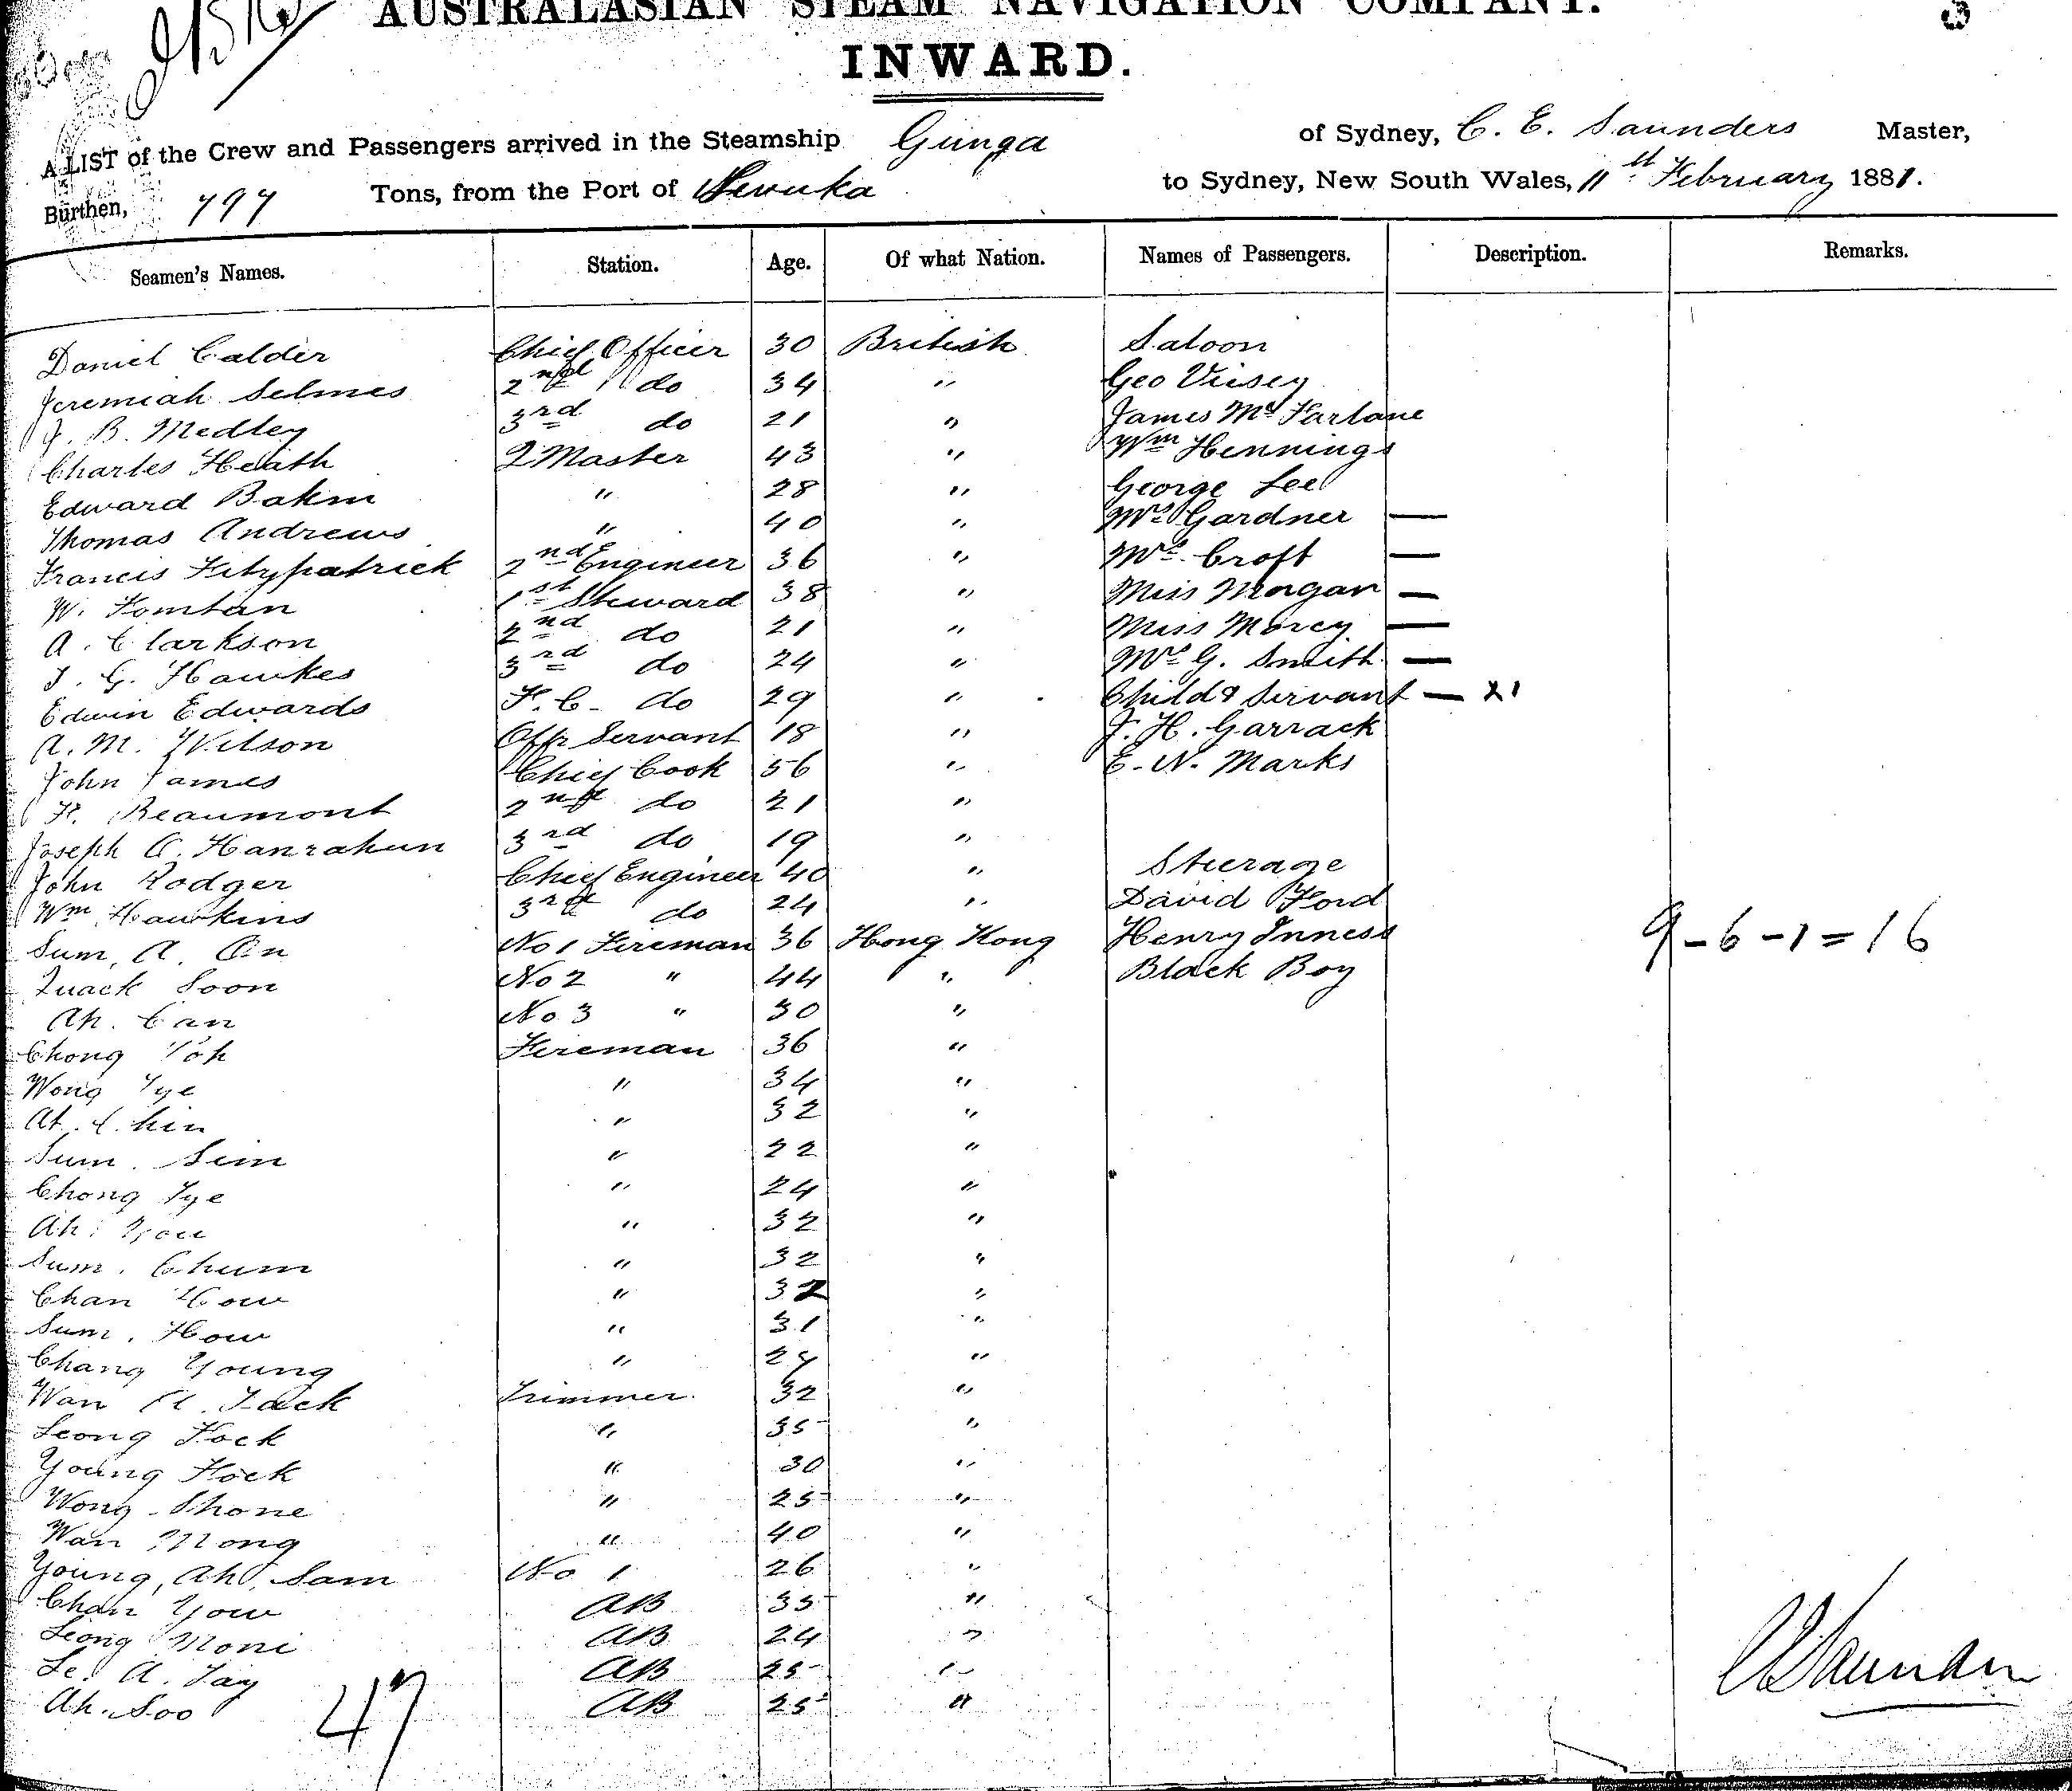 AUSTRALASIAN STEAM NAVIGATION COMPANY.
3
INWARD.
A LIST of the Crew and Passengers arrived in the Steamship Gunga of Sydney, C. E. Saunders Master,
Burthen, 797 Tons, from the Port of Levuka to Sydney, New South Wales, 11th February 1881.
Seamen's Names. Station. Age. Of what Nation. Names of Passengers. Description. Remarks.
Daniel Calder Chief Officer 30 British Saloon
Jeremiah Selmes 2nd do 34 " Geo Veisey
J. B. Medley 3rd do 21 " James Mc Farlane
Charles Heath Q Master 43 " Wm Hennings
Edward " 28 " George Lee
Thomas Andrews " 40 " Mrs Gardner —
Francis Fitzpatrick 2nd Engineer 36 " Mrs Croft —
W. 1st Steward 38 " Miss Morgan —
A. Clarkson 2nd do 21 " Miss Morey —
J. G. Hawkes 3rd do 24 " Mrs G. Smith —
Edwin Edwards F. C. do 29 " Child & Servant —
A. M. Wilson Offr Servant 18 " J. H. Garrack
John James Chief Cook 56 " E. N. Marks
H. Beaumont 2nd do 21 "
Joseph A. Hanrahan 3rd do 19 "
John Rodger Chief Engineer 40 " Steerage
Wm Hawkins 3rd do 24 " David Ford
Sum, A. On No 1 Fireman 36 Hong Kong Henry Inness 9-6-1=16
Quack Soon No 2 " 44 " Black Boy
Ah. Can No 3 " 30 "
Chong Yoh Fireman 36 "
Wong Tye " 34 "
At. Chin " 32 "
Sum. Sim " 22 "
Chong Tye " 24 "
Ah. You " 32 "
Sum. Chum " 32 "
Chan How " 32 "
Sum. How " 31 "
Chang Young " 27 "
Wan A. Jack Trimmer 32 "
Leong Fock " 35 "
Young Fock " 30 "
Wong Shone " 25 "
Wan Mong " 40 "
Young, Ah, Sam No 1 26 "
Chan Yow AB 35 "
Leong Moni AB 24 "
Le. A. Tay AB 25 "
Ah. Soo AB 25 "
47